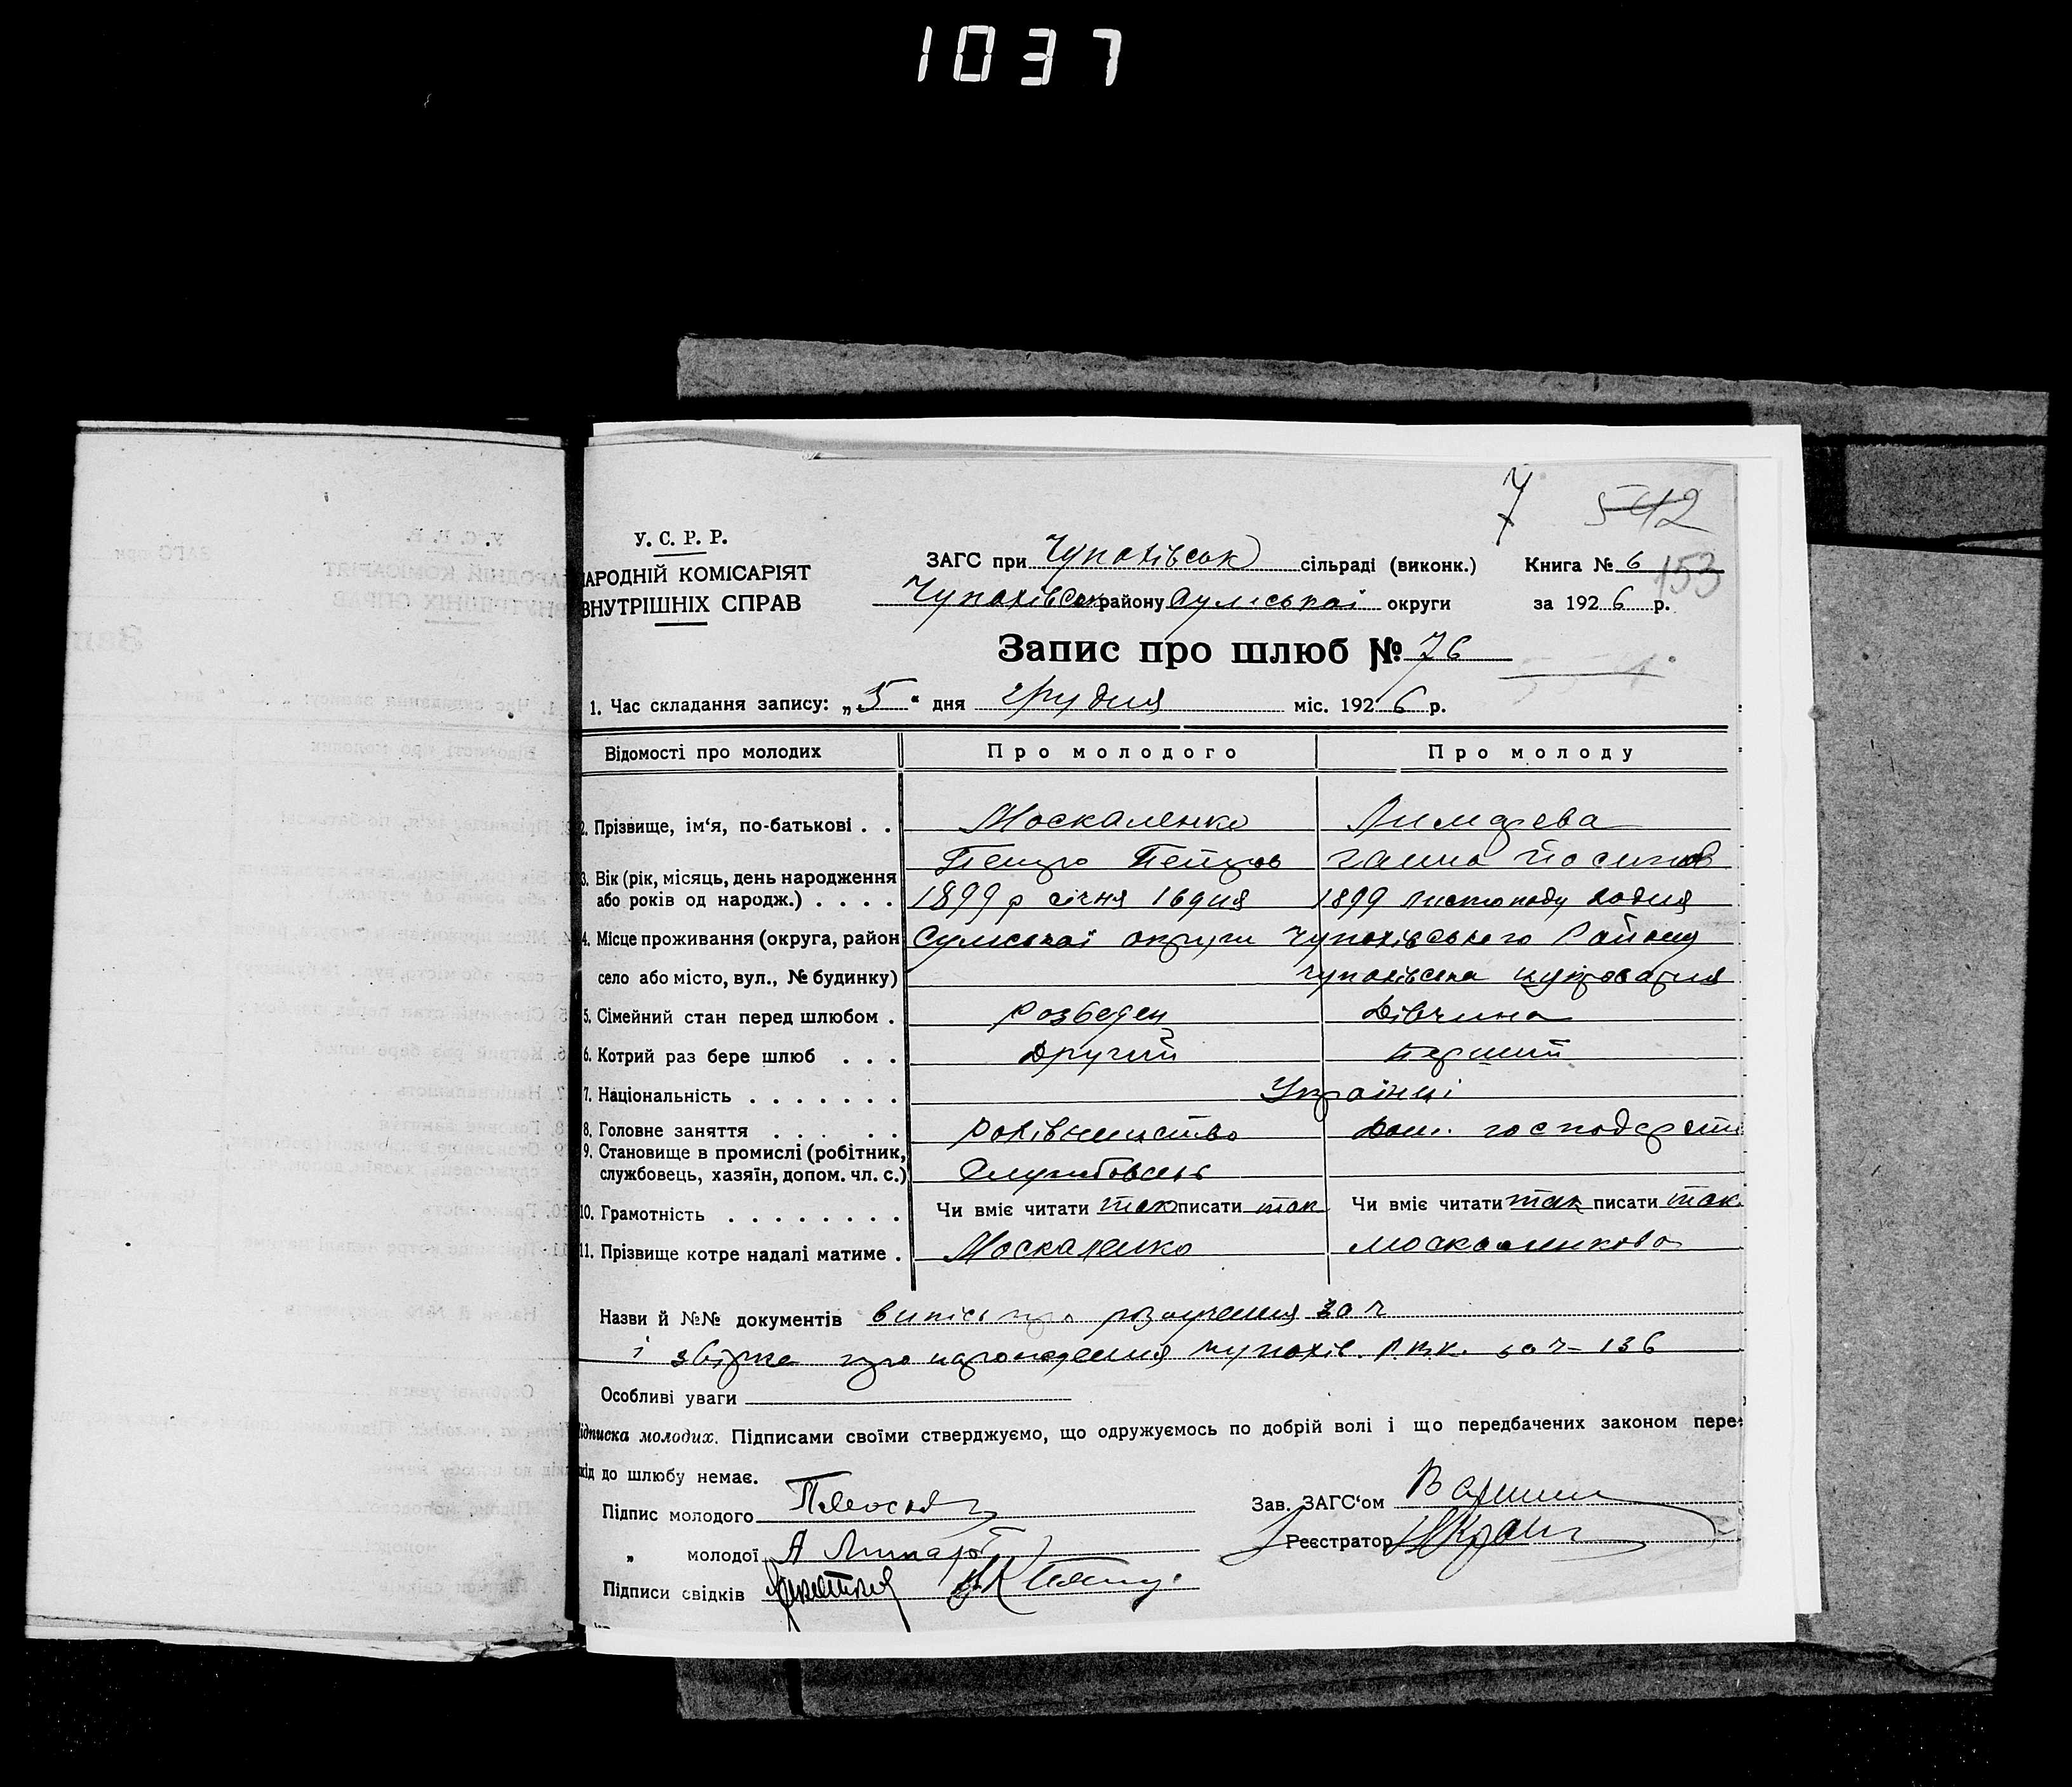 1037
7 542
У. С. Р. Р.
НАРОДНІЙ КОМІСАРІЯТ
ВНУТРІШНІХ СПРАВ
ЗАГС при Чупахівськ сільраді (виконк.) Книга № 6
153
Чупахівськ району Сумської округи за 1926 р.
Запис про шлюб № 76
1. Час складання запису: „5“ дня грудня міс. 1926 р.
Відомості про молодих Про молодого Про молоду
2. Прізвище, ім‘я, по-батькові . . Москаленко
Петро Петров Ганна
3. Вік (рік, місяць, день народження
або років од народж.) . . . . 1899 р січня 16 дня 1899 листопаду
4. Місце проживання (округа, район Сумської округи Чупахівського Району
село або місто, вул., № будинку) Чупахівська цукроварня
5. Сімейний стан перед шлюбом . Розведен Дівчина
6. Котрий раз бере шлюб . . . Другий перший
7. Національність . . . . . . . Українці
8. Головне заняття . . . . . . Рахівництво Дом. господарств
9. Становище в промислі (робітник,
службовець, хазяїн, допом. чл. с.) Службовець
10. Грамотність . . . . . . . . Чи вміє читати так писати так Чи вміє читати так писати так
11. Прізвище котре надалі матиме . Москаленко Москаленкова
Назви й №№ документів випісь про розлучення за ч
і про народження Чупахів. Р.В.К. за ч – 136
Особливі уваги
ідписка молодих. Підписами своїми стверджуємо, що одружуємось по добрій волі і що передбачених законом пере-
кід до шлюбу немає.
Підпис молодого Зав. ЗАГС‘ом
„ молодої А Реєстратор
Підписи свідків